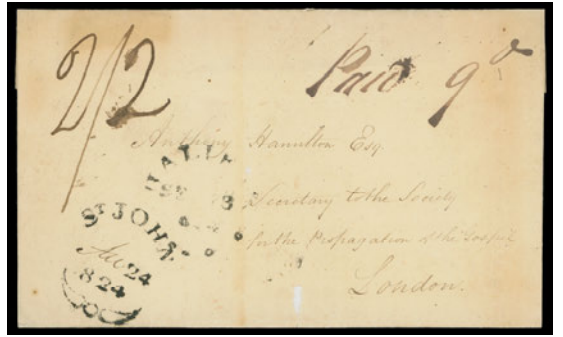 2/2
Paid 9d
Anthony Hamilton Esq.
Secretary to the Society
for the Propagation of the Gospel
London.
HALIF
8
ST JOHN
24
824